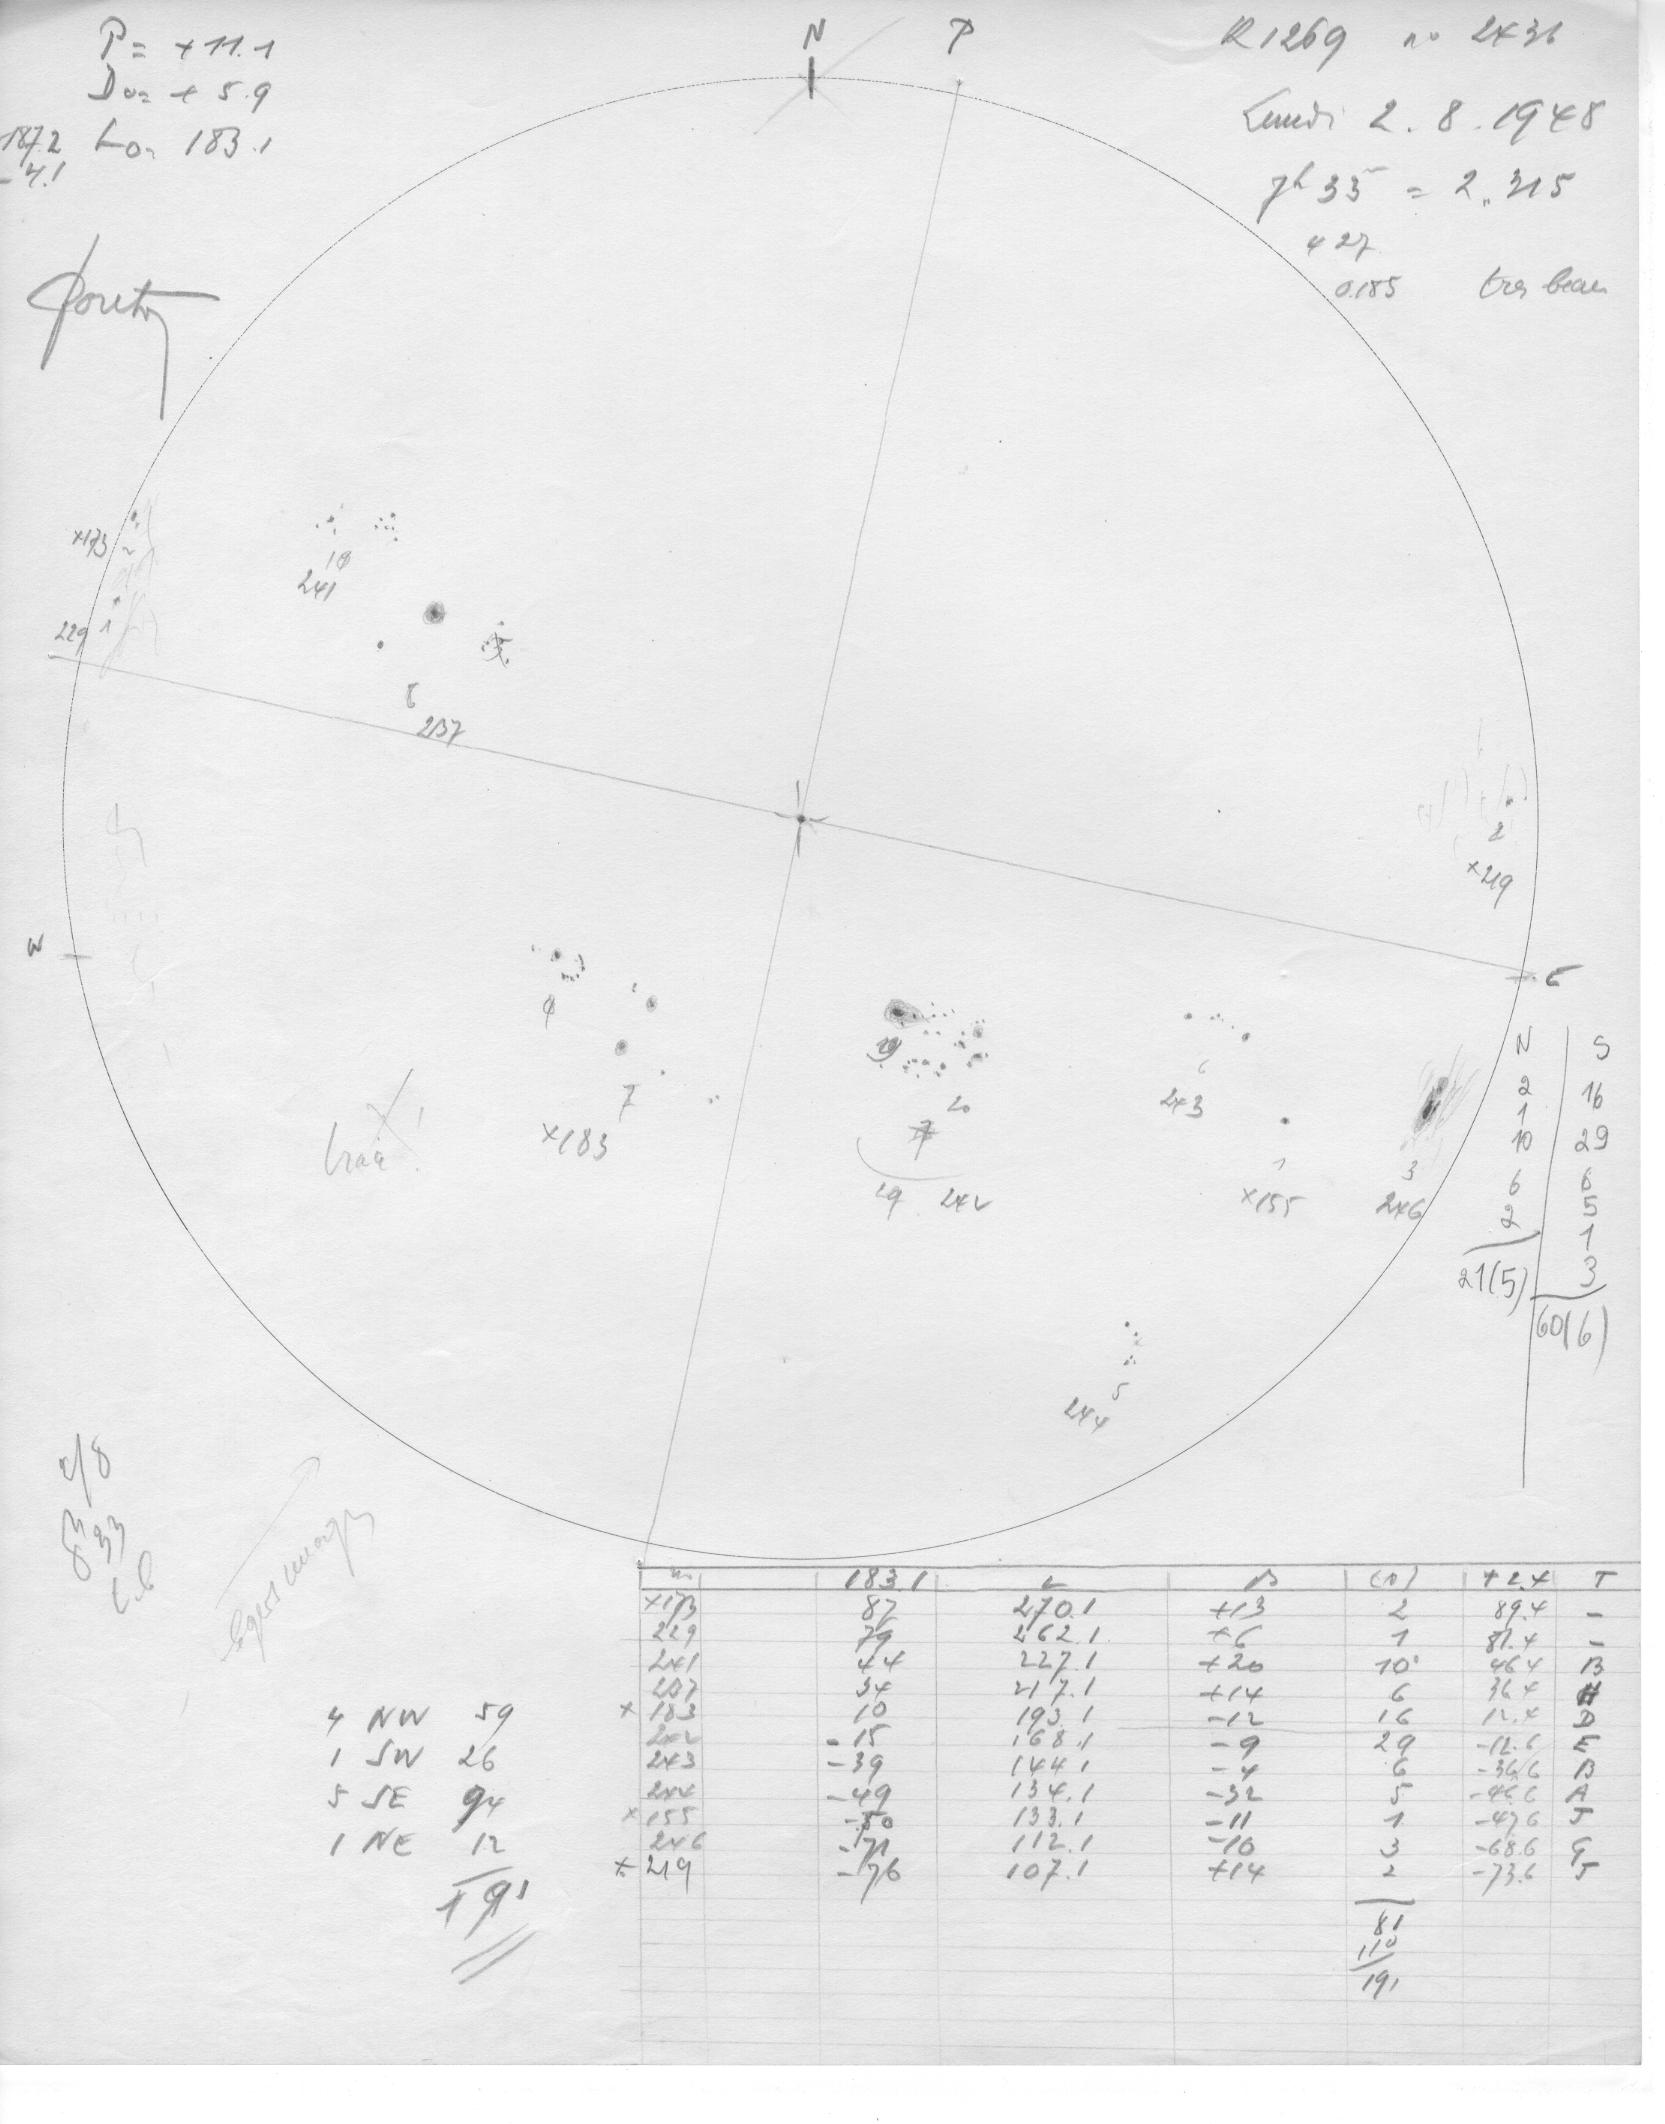 P = +11.1
Do = +5.9
187.2 Lo = 183.1
-4.1
N
P
R1269 no 2436
Lundi 2.8.1948
7h 35 = 2.315
427
0.185 très beau
×173 2
229 1
10
241
6
237
2
×219
W
E
7
×183
20
29 242
6
243
1
×155
3
246
5
244
N S
2 16
1 29
10 6
6 5
2 1
21(5) 3
60(6)
2/8
4 NW 59
1 SW 26
5 SE 94
1 NE 12
191
183.1 L B (n) +2.4 T
×173 87 270.1 +13 2 89.4 -
229 79 262.1 +6 1 81.4 -
241 44 227.1 +20 10 46.4 B
237 34 217.1 +14 6 36.4 H
×183 10 193.1 -12 16 12.4 D
242 -15 168.1 -9 29 -12.6 E
243 -39 144.1 -4 6 -36.6 B
244 -49 134.1 -32 5 -46.6 A
×155 -50 133.1 -11 1 -47.6 J
246 -71 112.1 -10 3 -68.6 G
×219 -76 107.1 +14 2 -73.6 J
81
110
191